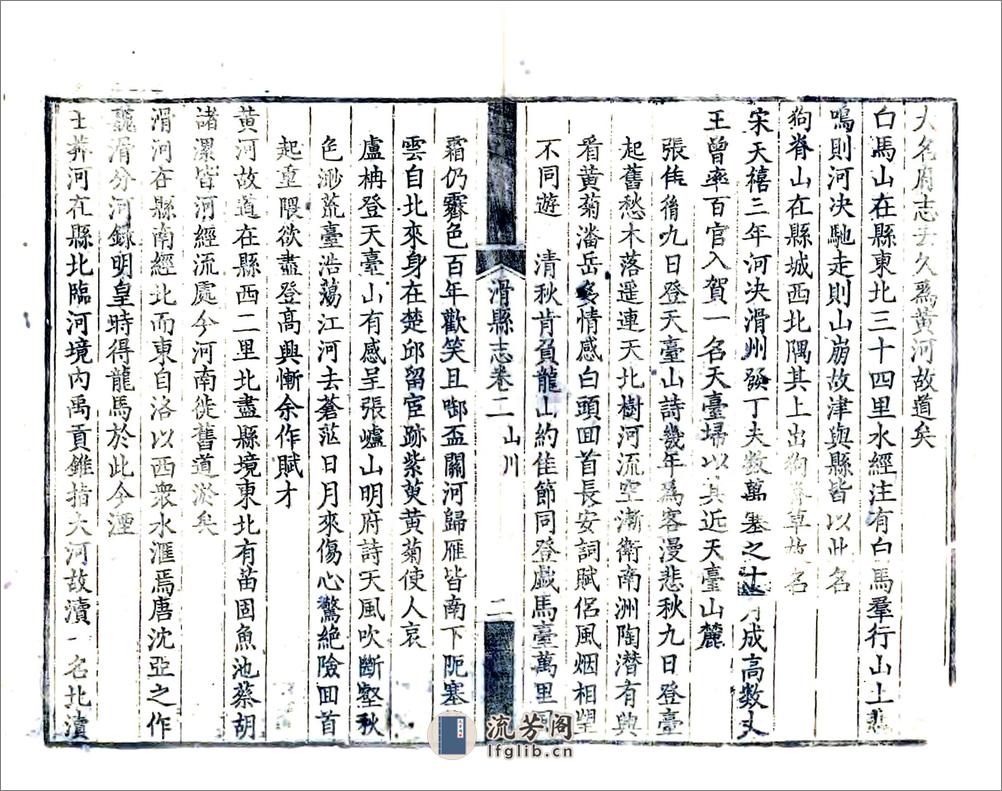 大名府志云久爲黃河故道矣
白馬山在縣東北三十四里水經注有白馬羣行山上悲
鳴則河決馳走則山崩故津與縣皆以此名
狗脊山在縣城西北隅其上出狗脊草故名
宋天禧三年河決滑州發丁夫数萬塞之十月成高数丈
王曾率百官入賀一名天臺埽以其近天臺山麓
張佳後九日登天臺山詩幾年爲客漫悲秋九日登臺
起舊愁木落遥連天北樹河流空漸衛南洲陶潜有興
看黃菊潘岳多情感白頭回首長安詞賦侶風烟相望
不同遊 清秋肯負龍山約佳節同登戯馬臺萬里
滑縣志卷二 山川 二
霜仍霽色百年歡笑且啣盃關河歸雁皆南下阨塞
雲自北來身在楚邱留宦跡紫萸黃菊使人哀
盧柟登天臺山有感呈張嶇山明府詩天風吹斷壑秋
色渺荒臺浩蕩江河去蒼茫日月來傷心驚絕險回首
起重隈欲盡登髙興慚余作賦才
黃河故道在縣西二里北盡縣境東北有苗固魚池蔡胡
諸潔皆河經流處今河南徙舊道淤矣
滑河在縣南經北而東自洛以西衆水滙焉唐沈亞之作
魏滑分河錄明皇時得龍馬於此今湮
王莽河在縣北臨河境内禹貢錐指大河故瀆一名北瀆
流芳阁
lfglib.cn